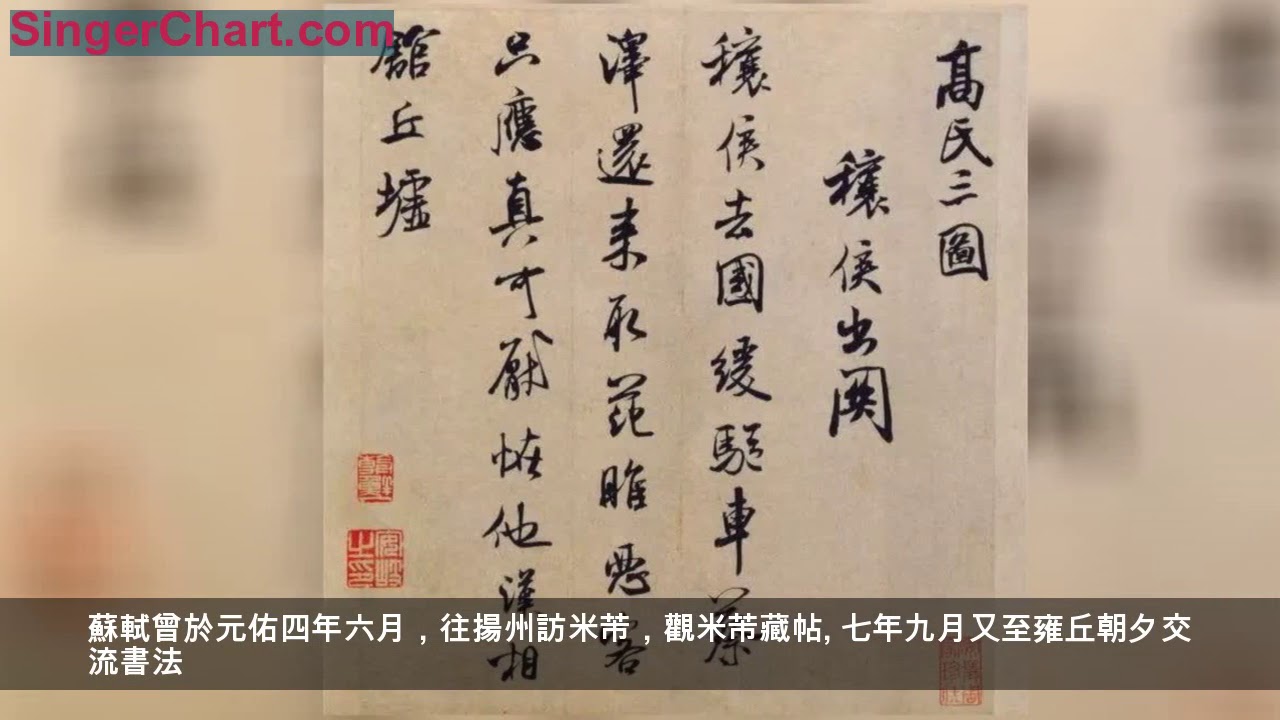 SingerChart.com
髙氏三圖
穰侯出関
穰侯去國緩驅車蔡
澤還来取范睢惡客
只應真可厭恠他漢相
舘丘墟
安岐之印
蘇軾曾於元佑四年六月，往揚州訪米芾，觀米芾藏帖, 七年九月又至雍丘朝夕交
流書法